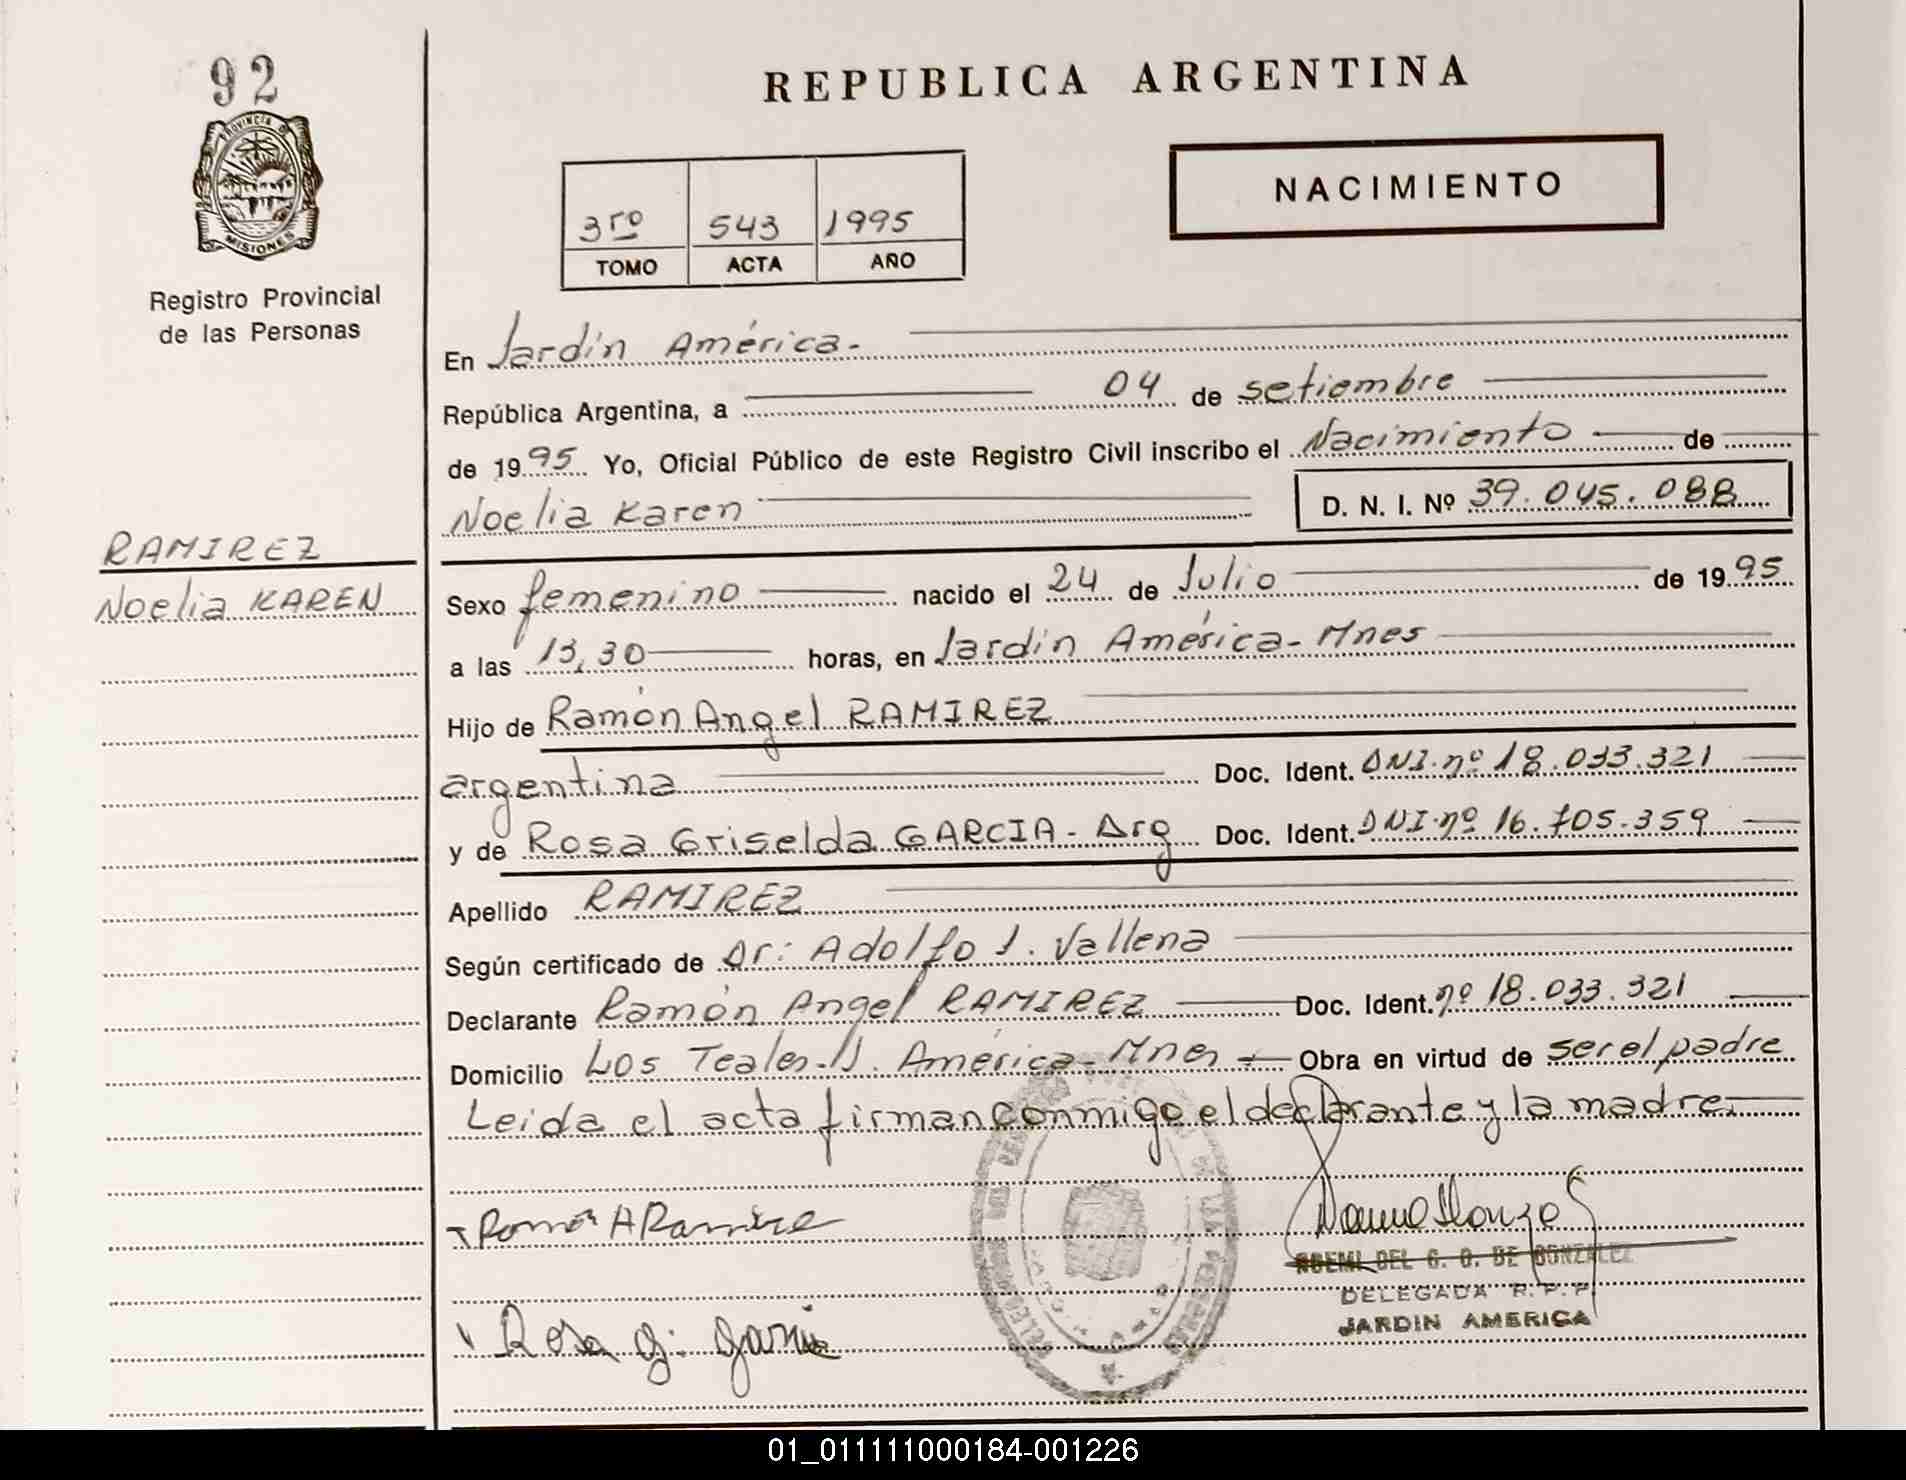 92
PROVINCIA DE
MISIONES
Registro Provincial
de las Personas
REPUBLICA ARGENTINA
NACIMIENTO
3ro 543 1995
TOMO ACTA AÑO
En Jardín América.-
República Argentina, a 04 de setiembre
de 1995 Yo, Oficial Público de este Registro Civil inscribo el Nacimiento de
Noelia Karen D. N. I. Nº 39.045.088
RAMIREZ
Noelia KAREN
Sexo femenino nacido el 24 de Julio de 1995
a las 13,30 horas, en Jardín América-Mnes
Hijo de Ramón Angel RAMIREZ
argentina Doc. Ident. DNI.nº 18.033.321
y de Rosa Griselda GARCIA- Arg Doc. Ident. DNI.nº 16.705.359
Apellido RAMIREZ
Según certificado de Dr: Adolfo J. Vallena
Declarante Ramón Angel RAMIREZ Doc. Ident. nº 18.033.321
Domicilio Los Teales-J. América-Mnes Obra en virtud de ser el padre
Leida el acta firman conmigo el declarante y la madre.
Ramón A Ramirez
NOEMI DEL C. G. DE GONZALEZ
DELEGADA R.P.P.
JARDIN AMERICA
Rosa G. Garcia
01_011111000184-001226